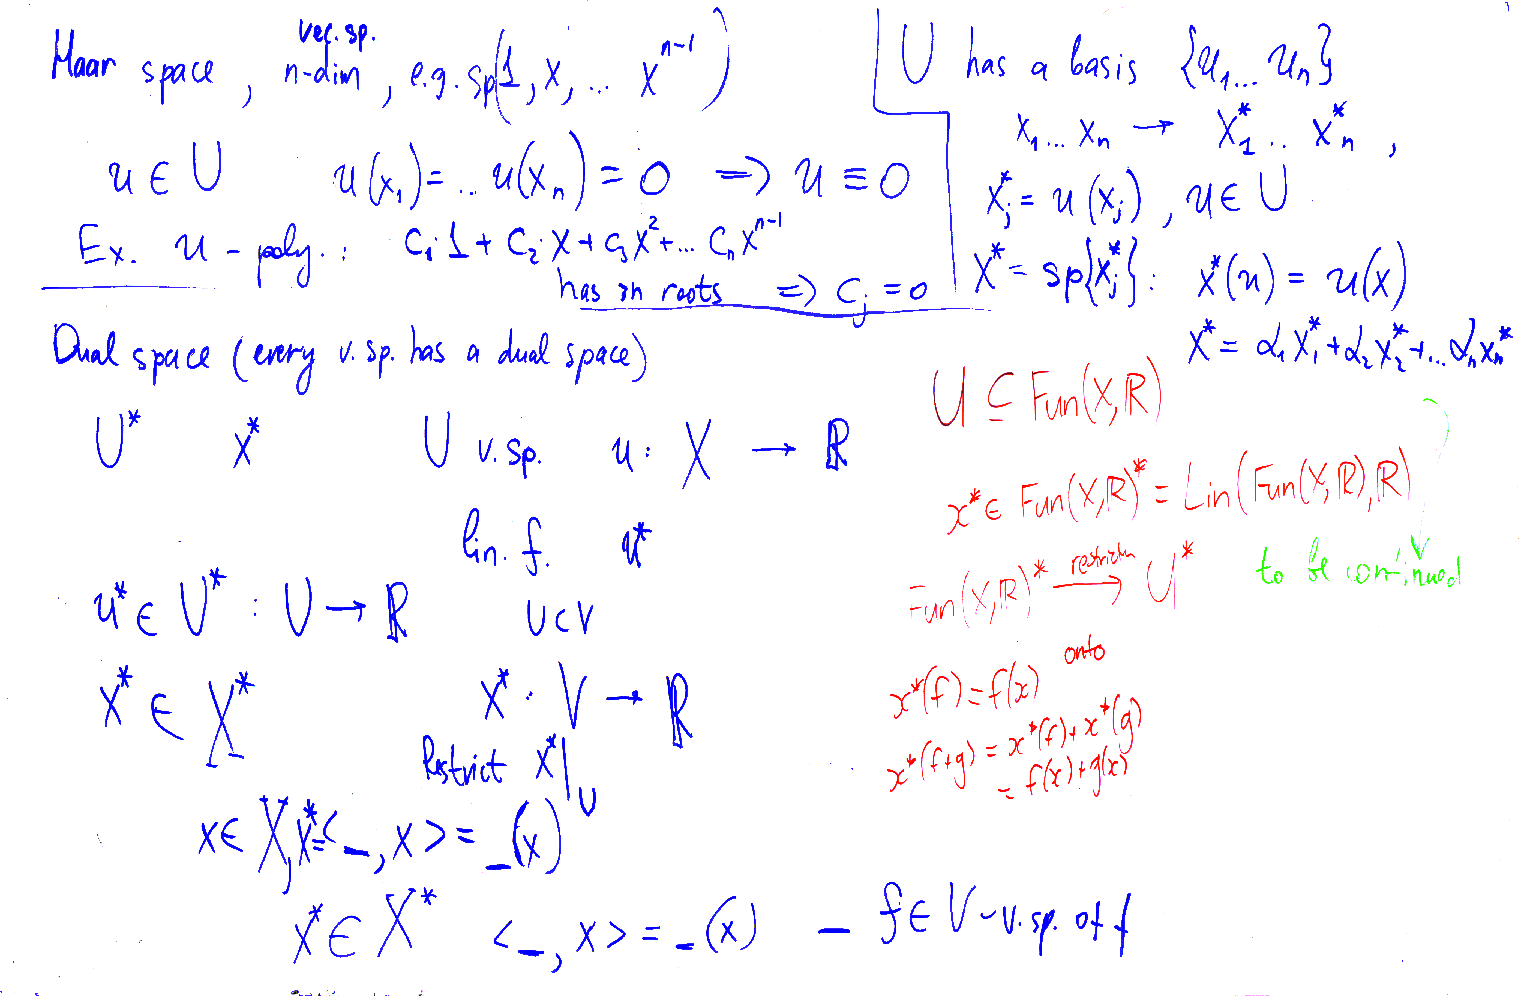 Haar space, n-dim vec. sp., e.g. sp(1, x, ... x^{n-1})
u ∈ U u(x₁) = .. u(x_n) = 0 => u ≡ 0
Ex. u - poly. : c₁·1 + c₂·x + c₃x² + ... c_n x^{n-1}
has n roots => c_j = 0
U has a basis {u₁... u_n}
x₁... x_n → x₁* .. x_n*,
x_j* = u(x_j), u ∈ U
X* = sp{x_j*} : x*(u) = u(x)
x* = α₁x₁* + α₂x₂* + ... α_n x_n*
Dual space (every v. sp. has a dual space)
U* x* U v. sp. u: X → ℝ
lin. f. u*
u* ∈ U* : U → ℝ U ⊂ V
x* ∈ X* x* : V → ℝ
Restrict x*|_U
x ∈ X, x* = <_, x> = _(x)
x* ∈ X* <_, x> = _(x) _ f ∈ V - v. sp. of f
U ⊆ Fun(X, ℝ)
x* ∈ Fun(X, ℝ)* = Lin(Fun(X, ℝ), ℝ)
Fun(X, ℝ)* → U*
onto
x*(f) = f(x)
x*(f+g) = x*(f) + x*(g)
= f(x) + g(x)
to be continued